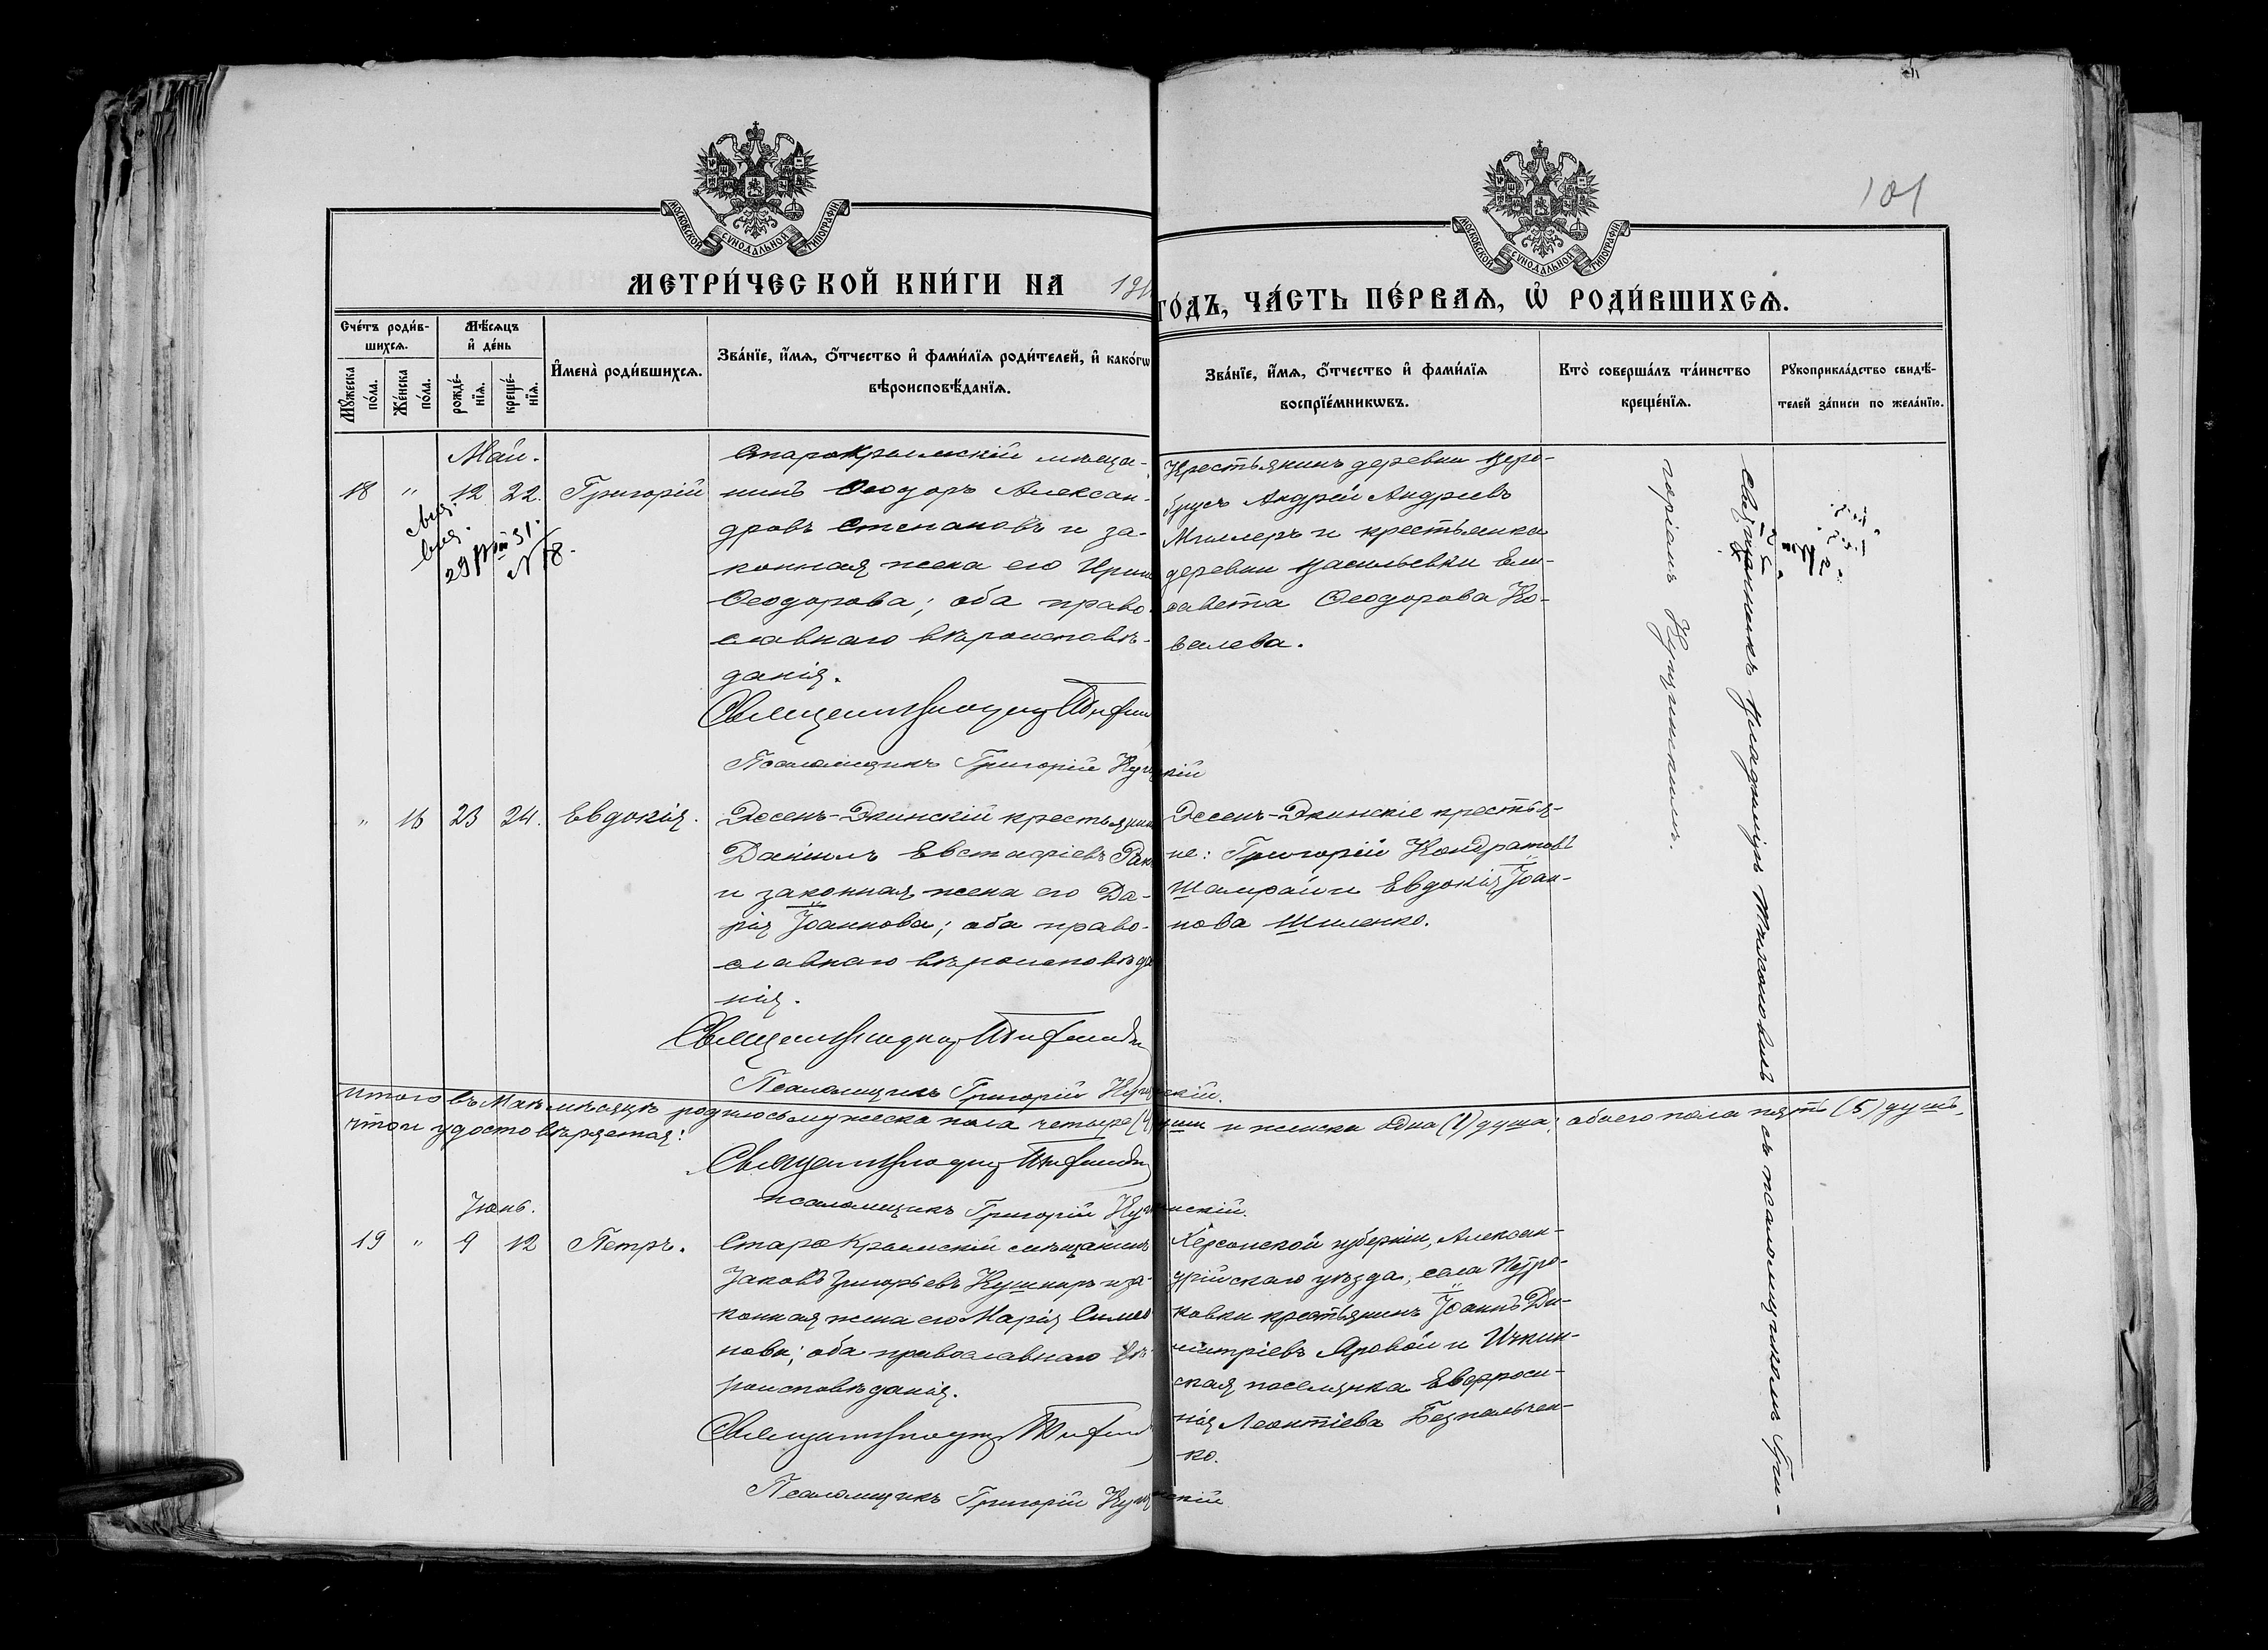 101
МОСКОВСКОЙ СѴНОДАЛЬНОЙ ТИПОГРАФІИ
МОСКОВСКОЙ СѴНОДАЛЬНОЙ ТИПОГРАФІИ
МЕТРИ́ЧЕСКОЙ КНИ́ГИ НА 19
ГО́ДЪ, ЧА́СТЬ ПЕ́РВАѦ, Ѡ҆ РОДИ́ВШИХСѦ.
Сче́тъ роди́в-
шихсѧ.
Мѣ́сѧцъ
и҆ де́нь
Мꙋ́жеска по́ла.
Же́нска по́ла.
рожде́-
нїѧ.
креще́-
нїѧ.
И҆мена̀ роди́вшихсѧ.
Зва́нїе, и҆́мѧ, ѻ҆́тчество и҆ фами́лїѧ роди́телей, и҆ како́гѡ
вѣроисповѣ́данїѧ.
Зва́нїе, и҆́мѧ, ѻ҆́тчество и҆ фами́лїѧ
воспрїе́мникѡвъ.
Кто̀ соверша́лъ та́инство
креще́нїѧ.
Рꙋкоприкла́дство свидѣ́-
телей за́писи по жела́нїю.
Май.
18 " 12 22. Григорій
29 31.
N 18.
Старокрымскій мѣща-
нинъ Ѳеодоръ Алексан-
дровъ Степановъ и за-
конная жена его Ирин
Ѳеодорова; оба право-
славнаго вѣроисповѣ-
данія.
Священникъ
Псаломщикъ Григорій
Крестьянинъ деревни
Андрей Андреевъ
Миллеръ и крестьянка
деревни Васильевки Ели-
савета Ѳеодорова Ко-
валева.
Священникъ Владиміръ съ псаломщикомъ Гри-
горіемъ
" 16 23 24. Евдокія.
Эссенъ-Экинскій крестьянин
Даніилъ Евстафіевъ
и законная жена его Да-
рія Іоаннова; оба право-
славнаго вѣроисповѣда
нія.
Священникъ
Псаломщикъ Григорій
Эссенъ-Экинскіе крестья-
не: Григорій Кондратовъ
Шамрай и Евдокія Іоан-
нова Шиленко.
Итого въ Маѣ мѣсяцѣ родилось мужеска пола четыре (4) души и женска одна (1) душа; обоего пола пять (5) душъ,
что и удостовѣряется:
Священникъ
Псаломщикъ Григорій
Іюнь.
19 " 9 12 Петръ.
Старокрымскій мѣщанинъ
Іаковъ Григорьевъ Кушниръ и за-
конная жена его Марія Симео
нова; оба православнаго вѣ-
роисповѣданія.
Священникъ
Псаломщикъ Григорій
Херсонской губерніи, Алексан-
дрійскаго уѣзда, села Петро-
ковки крестьянинъ Іоаннъ Ди-
митріевъ Яровой и Ичкин-
ская поселянка Евфроси-
нія Леонтіева Безпальчен-
ко.